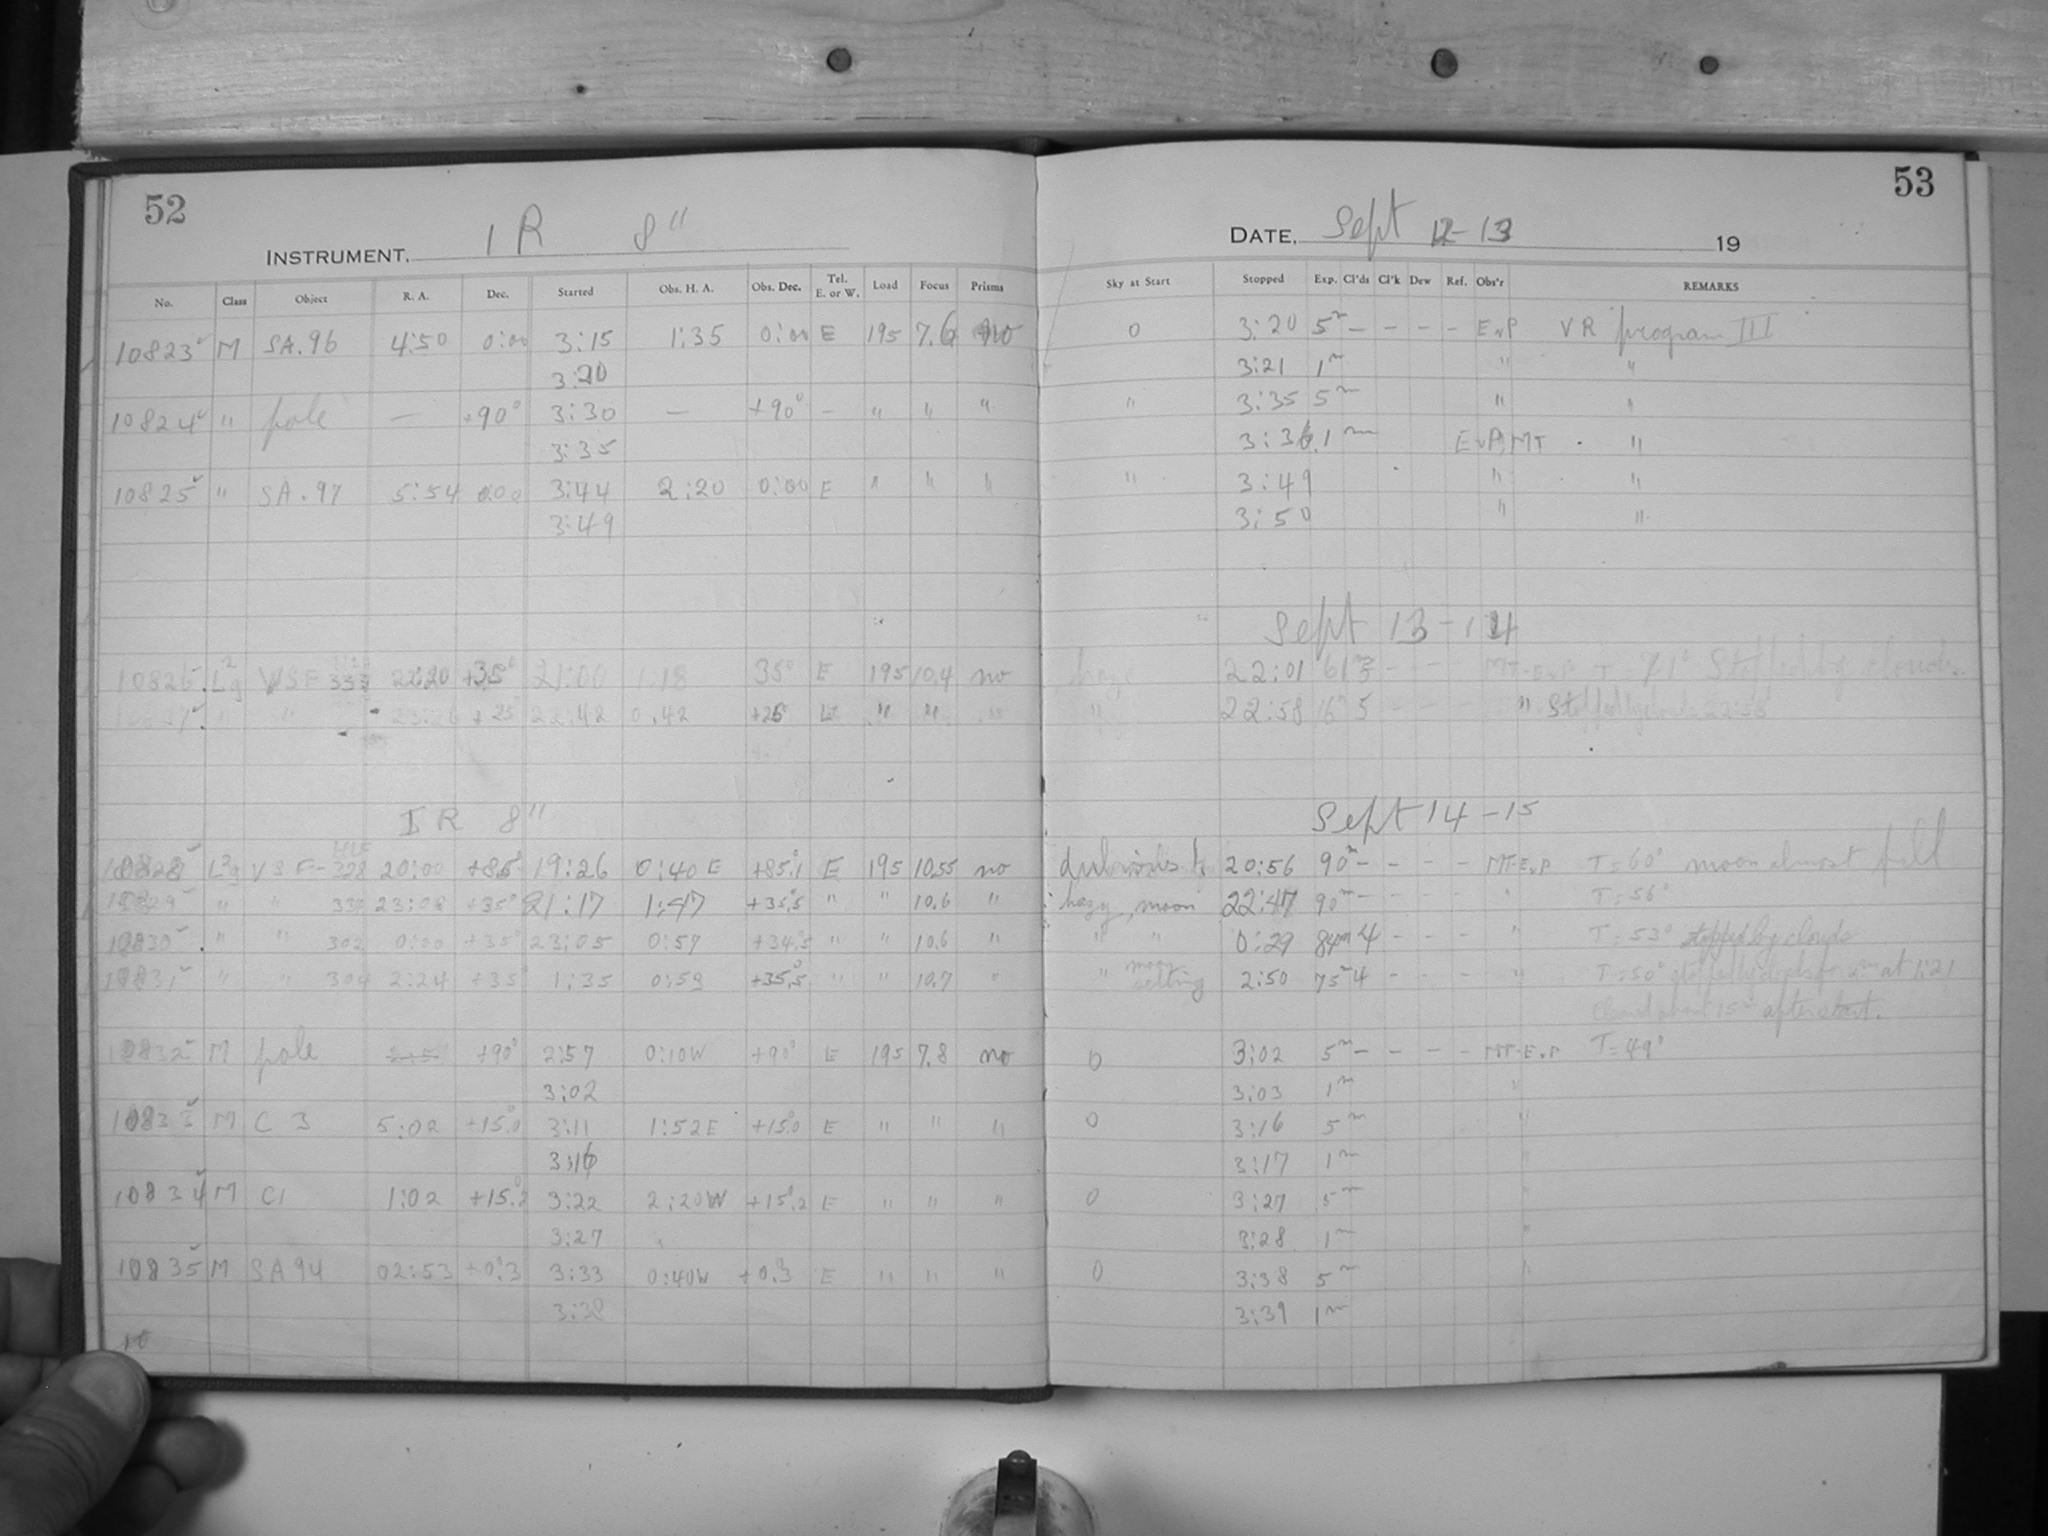 52
INSTRUMENT. IR 8"
No. Class Object R. A. Dec. Started Obs. H. A. Obs. Dec. Tel. E. or W. Load Focus Prisms
10823 M SA.96 4:50 0:00 3:15 1:35 0:00 E 195 7.6 no
3:20
10824 " pole — +90° 3:30 — +90° - " " "
3:35
10825 " SA.97 5:54 0:00 3:44 2:20 0:00 E " " "
3:49
10826 L2g VSF 22:20 +35° 21:00 1:18 35° E 195 10.4 no
" " +25 22:42 0.42 +25° E " " "
IR 8"
10828 L2g VSF- 328 20:00 +85° 19:26 0:40 E +85.1 E 195 10.55 no
10829 " " 23:08 +35° 21:17 1:47 +35.5 " " 10.6 "
10830 " " 302 0:00 +35° 23:05 0:57 +34.5 " " 10.6 "
10831 " " 304 2:24 +35° 1:35 0:59 +35.5 " " 10.7 "
10832 M pole +90° 2:57 0:10W +90° E 195 7.8 no
3:02
10833 M C 3 5:02 +15.0 3:11 1:52E +15.0 E " " "
3:16
10834 M C1 1:02 +15.2 3:22 2:20W +15.2 E " " "
3:27
10835 M SA94 02:53 +0.3 3:33 0:40W +0.3 E " " "
3:38
10
53
DATE. Sept 12-13 19
Sky at Start Stopped Exp. Cl'ds Cl'k Dew Ref. Obs'r REMARKS
0 3:20 5m - - - - EvP VR program III
3:21 1m " "
" 3:35 5m " "
3:36 1m EvP, MT "
" 3:49 " "
3:50 " "
Sept 13-14
haze 22:01 61m 3 - - - MT-EvP T = 71° Stopped by clouds.
" 22:58 16m 5 - - - " Stopped by clouds 22:58
Sept 14-15
20:56 90m - - - - MT-EvP T=60° moon almost full
hazy, moon 22:47 90m - - - - " T=56°
" " 0:29 84m 4 - - - " T=53° stopped by clouds
" moon setting 2:50 75m 4 - - - " T=50° stopped by clouds for at 1:21
Cleared about 15m after start.
0 3:02 5m - - - - MT-EvP T=49°
3:03 1m "
0 3:16 5m "
3:17 1m "
0 3:27 5m "
3:28 1m "
0 3:38 5m "
3:39 1m